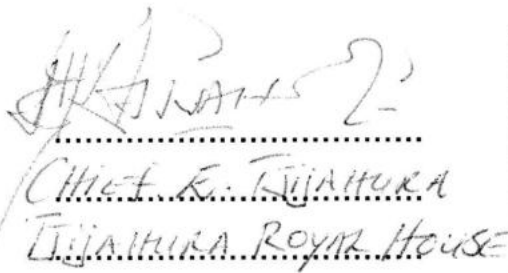 CHIEF. E. TJIJAHURA
TJIJAHURA ROYAL HOUSE